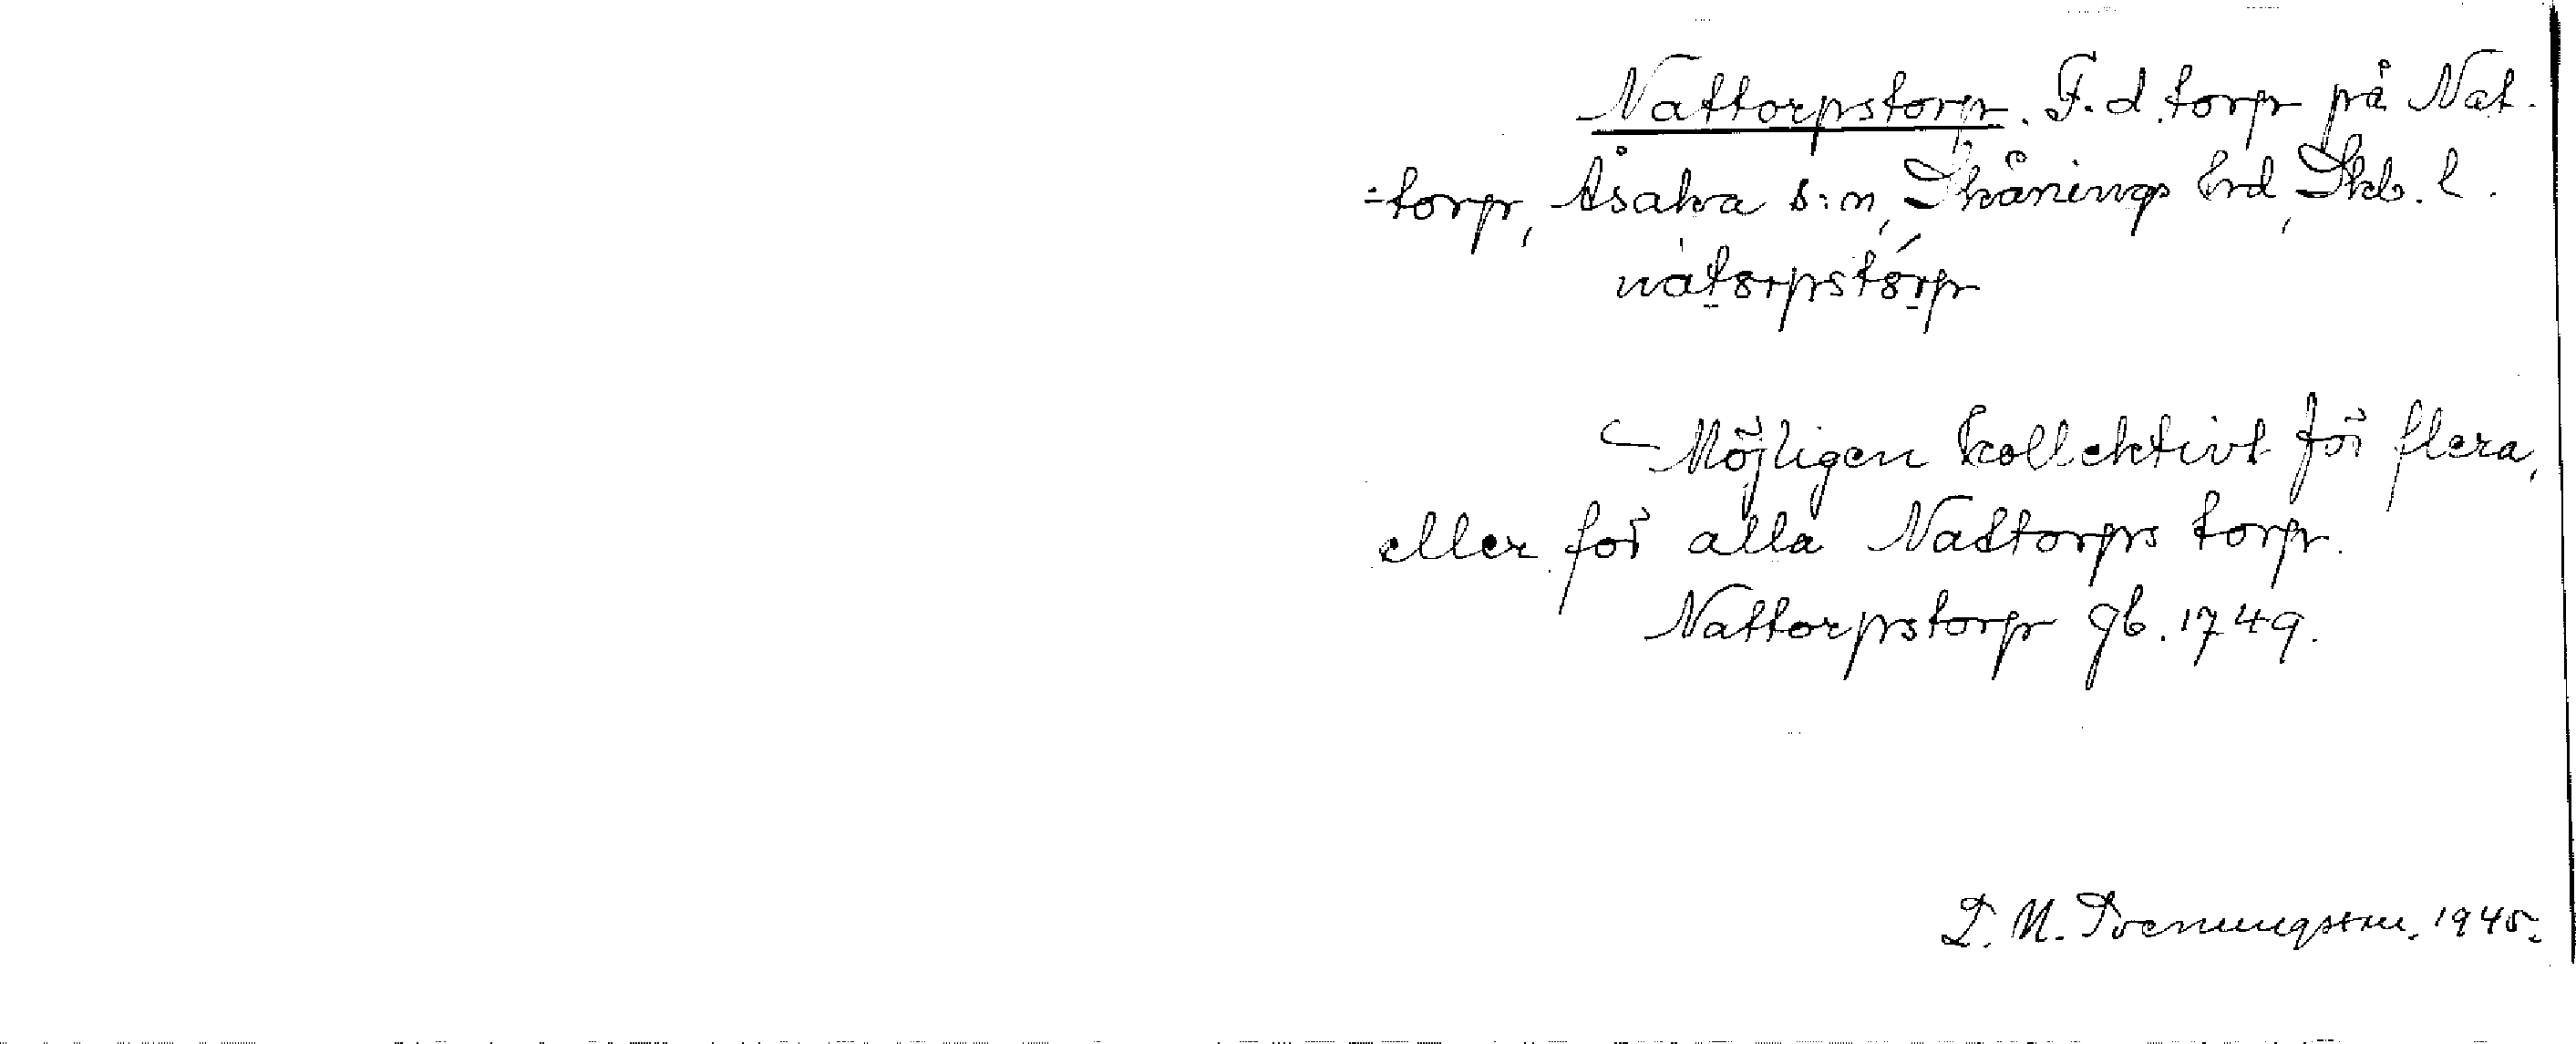 Nattorpstorp. F.d. torp på Nat-
-torp, Åsaka s:n, Skånings hrd, Skb. l.
nàtorpstórp
Möjligen kollektivt för flera,
eller för alla Nattorps torp.
Nattorpstorp gb. 1749.
D. M. 1945.